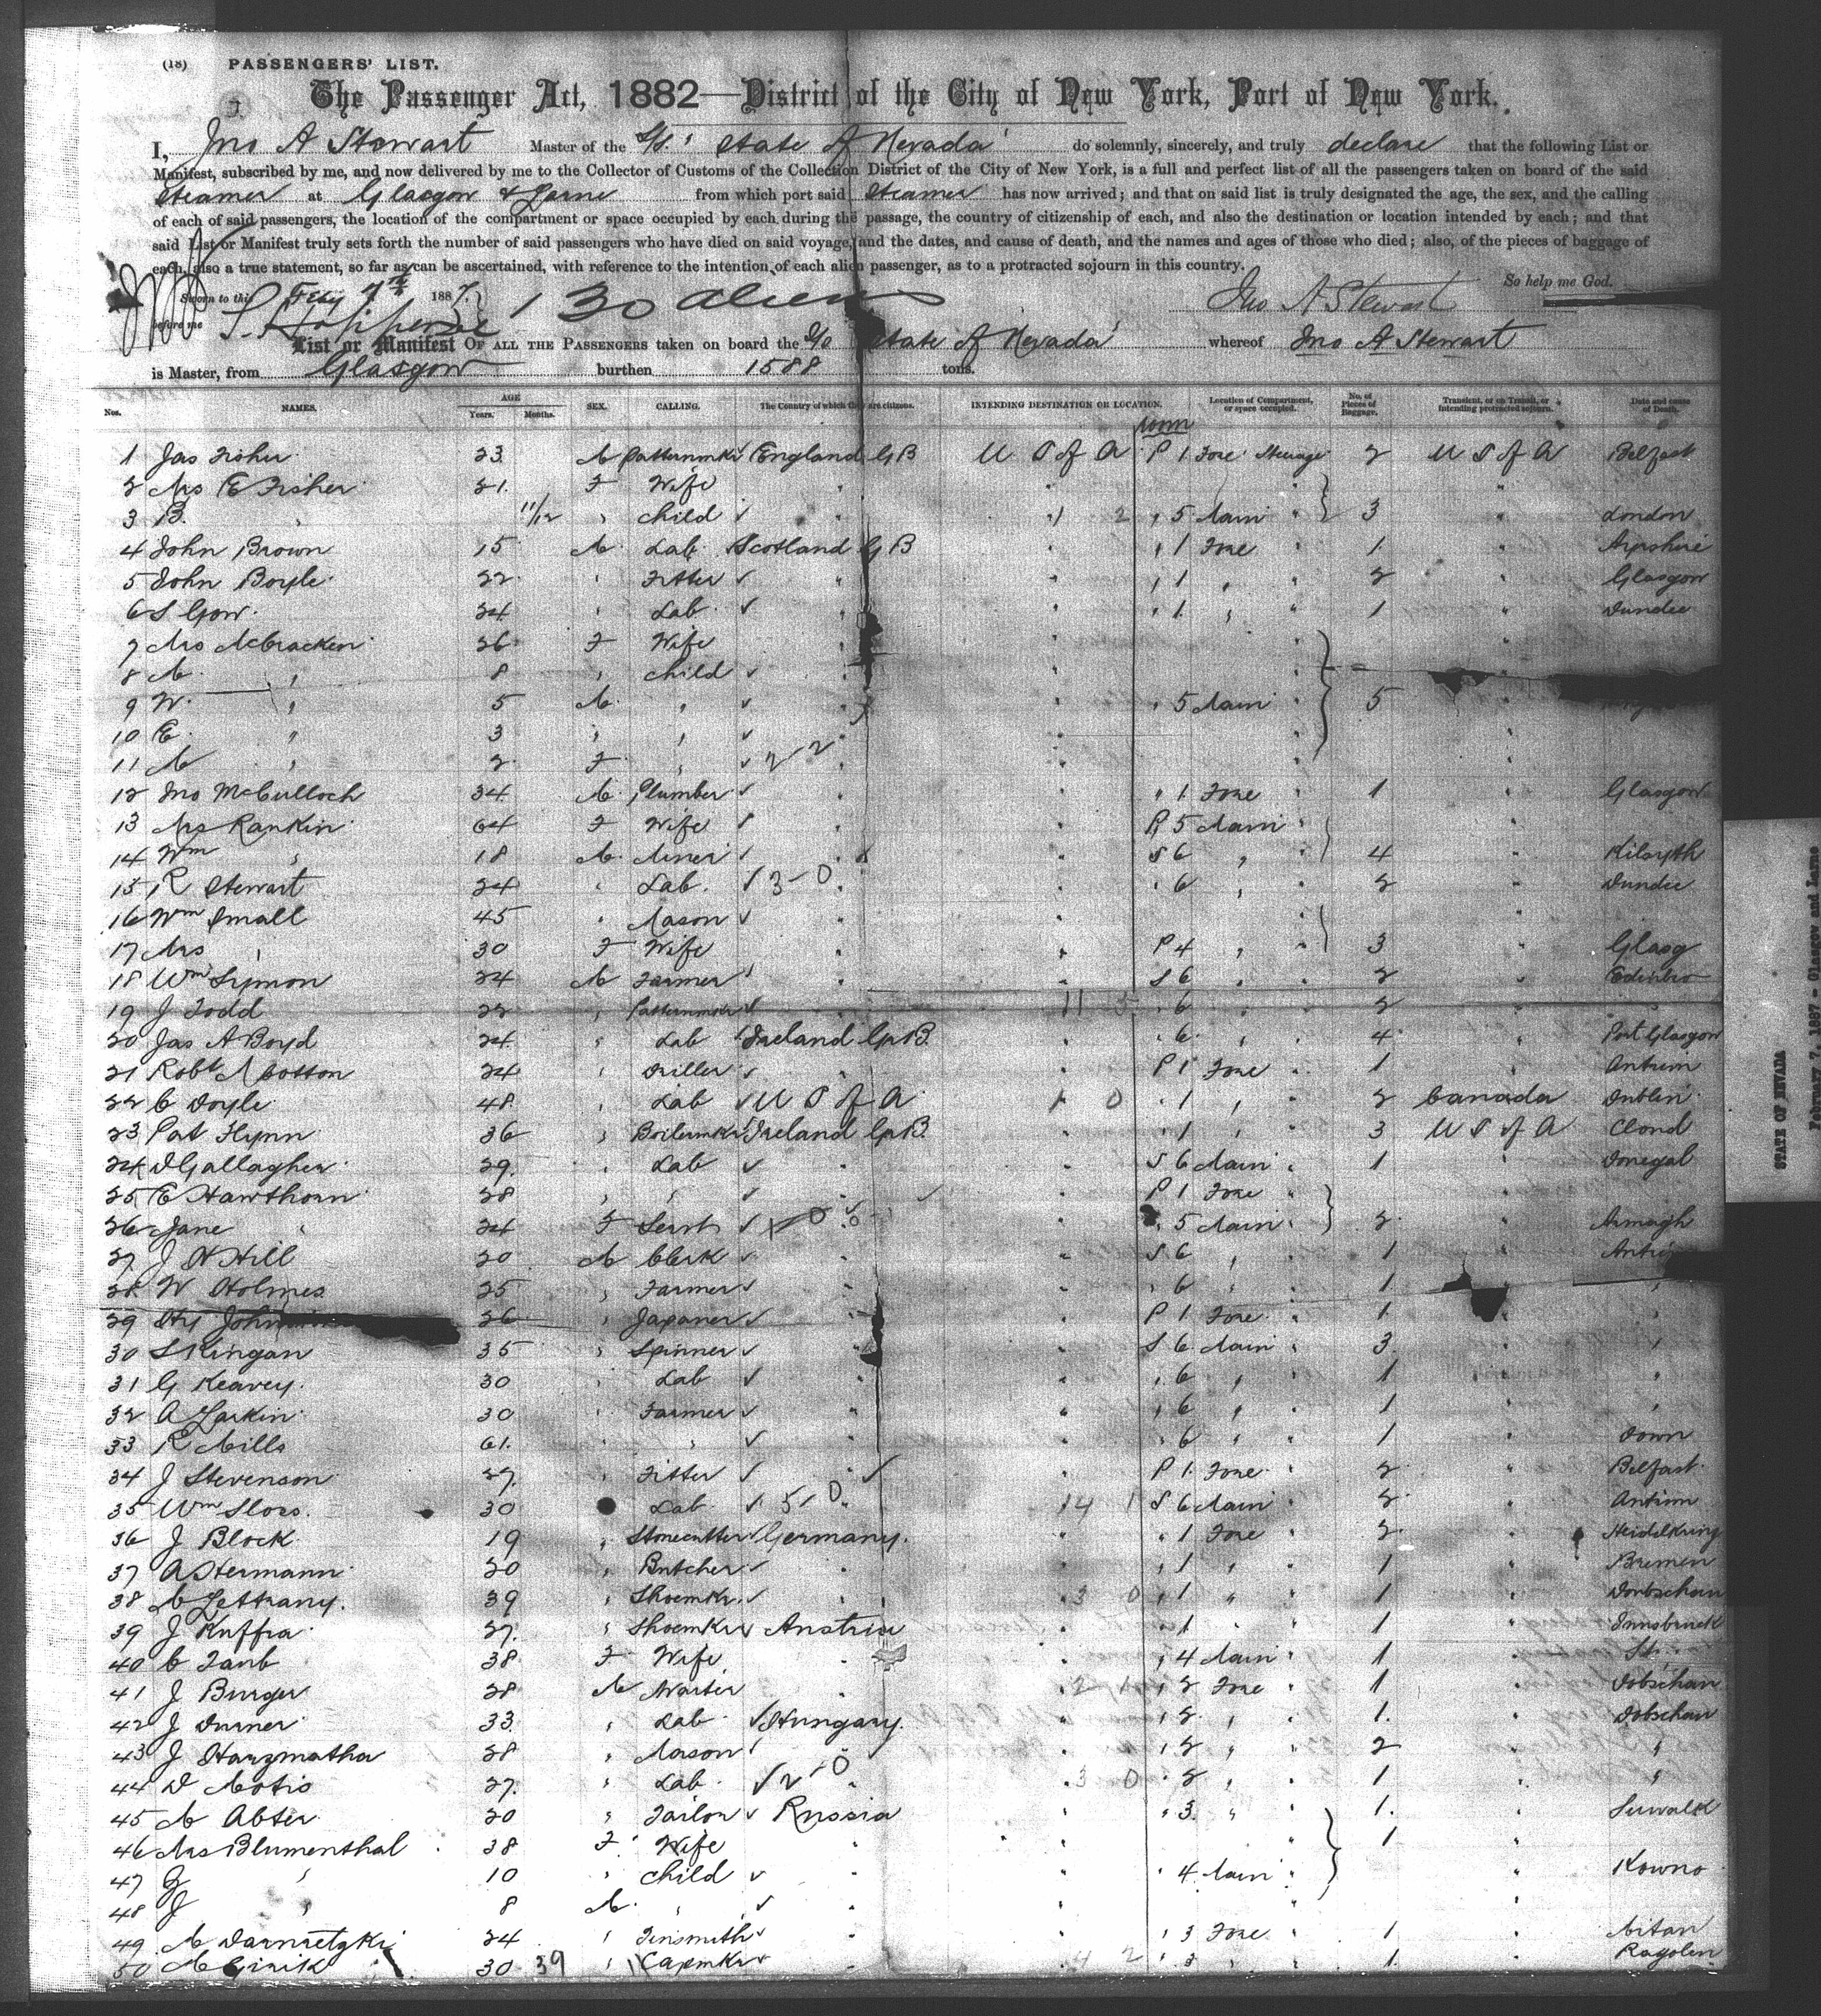 (18) PASSENGERS' LIST.
The Passenger Act, 1882—District of the City of New York, Port of New York.
I, Jno A Stewart Master of the S/S. "State of Nevada" do solemnly, sincerely, and truly declare that the following List or
Manifest, subscribed by me, and now delivered by me to the Collector of Customs of the Collection District of the City of New York, is a full and perfect list of all the passengers taken on board of the said
Steamer at Glasgow & Larne from which port said Steamer has now arrived; and that on said list is truly designated the age, the sex, and the calling
of each of said passengers, the location of the compartment or space occupied by each during the passage, the country of citizenship of each, and also the destination or location intended by each; and that
said List or Manifest truly sets forth the number of said passengers who have died on said voyage, and the dates, and cause of death, and the names and ages of those who died; also, of the pieces of baggage of
each, also a true statement, so far as can be ascertained, with reference to the intention of each alien passenger, as to a protracted sojourn in this country.
So help me God.
Sworn to this Feby 7th 1887. 130 Aliens Jno A Stewart
before me
List or Manifest OF ALL THE PASSENGERS taken on board the S/S State of Nevada whereof Jno A Stewart
is Master, from Glasgow burthen 1588 tons.
Nos. NAMES. AGE Years. Months. SEX. CALLING. The Country of which they are citizens. INTENDING DESTINATION OR LOCATION. Location of Compartment, or space occupied. No. of Pieces of Baggage. Transient, or on Transit, or intending protracted sojourn. Date and cause of Death.
room
1 Jas Fisher 23 M Patternmkr England GB U S of A P 1 Fore Steerage 2 U S of A Belfast
2 Mrs E Fisher 21 F Wife "
3 B. " 11/12 " Child " 1 2 " 5 Main " 3 " London
4 John Brown 15 M Lab Scotland GB " 1 Fore " 1 " Ayrshire
5 John Boyle 22 " Fitter " " 1 " " 2 " Glasgow
6 S Gow 24 " Lab " " 1 " " 1 " Dundee
7 Mrs McCracken 26 F Wife "
8 M " 8 " Child "
9 W. " 5 M " " " 5 Main " 5
10 E. " 3 " " "
11 M " 2 F " " 2 2
12 Jno McCulloch 34 M Plumber " " 1 Fore 1 " Glasgow
13 Mrs Rankin 64 F Wife " P 5 Main "
14 Wm " 18 M Miner " S 6 " " 4 " Kilsyth
15 R Stewart 24 " Lab. 3-0 " " 6 " 2 " Dundee
16 Wm Small 45 " Mason "
17 Mrs " 30 F Wife " P 4 " " 3 " Glasg
18 Wm Symon 24 M Farmer " S 6 " " 2 " Edinbro
19 J Todd 22 " Patternmkr 11 " 6 " " 2 "
20 Jas A Boyd 24 " Lab Ireland GB " " 6 " " 4 " Port Glasgow
21 Robt McCotton 24 " Driller " P 1 Fore " 1 " Antrim
22 C Doyle 48 " Lab U S of A 1 0 " 1 " 2 Canada Dublin
23 Pat Flynn 36 " Boilermkr Ireland GB " " 1 " " 3 U S of A
24 D Gallagher 29 " Lab " S 6 Main " 1 " Donegal
25 E Hawthorn 28 " " " P 1 Fore "
26 Jane " 24 F Servt " " 5 Main " 2 " Armagh
27 J H Hill 20 M Clerk " S 6 " 1 "
28 W Holmes 25 " Farmer " " 6 " 1 "
29 26 " Japaner " P 1 Fore " 1 "
30 S Kingan 35 " Spinner " S 6 Main " 3 "
31 G Keavey 30 " Lab " " 6 " 1 "
32 A Larkin 30 " Farmer " " 6 " " 1 "
33 R Mills 61 " " " " 6 " " 1 " Down
34 J Stevenson 27 " Fitter " P 1 Fore " 2 " Belfast
35 Wm Sloss 30 Lab 5 0 14 1 S 6 Main " 2 " Antrim
36 J Block 19 " Stonecutter Germany. " 1 Fore " 2 "
37 A Hermann 20 " Butcher " " 1 " " 1 " Bremen
38 C Zettrany 39 " Shoemkr 3 0 " 1 " " 1 "
39 J Kuffra 27 " Shoemkr Austria " 1 " " 1 " Innsbruck
40 C Taub 38 F Wife " " 4 Main " 1 "
41 J Burger 28 M Waiter " 2 1 " 2 Fore " 1 " Dobschau
42 J Durner 33 " Lab Hungary. " 2 " " 1 " Dobschau
43 J Harzmatha 28 " Mason " " 2 " " 2 " "
44 D Motis 27 " Lab. 2 0 " 3 0 " 2 " " 1 " "
45 M Abter 20 " Tailor Russia " " 3 " " 1 " Suwalk
46 Mrs Blumenthal 38 F Wife " 1
47 " 10 Child " " 4 Main " " Kowno
48 J " 8 M " "
49 M Darnretzki 24 " Tinsmith " " 3 Fore " 1 " Mitau
50 M 30 39 " Capmkr " 4 2 " 3 " 1 "
STATE OF NEVADA
February 7, 1887 - Glasgow and Larne